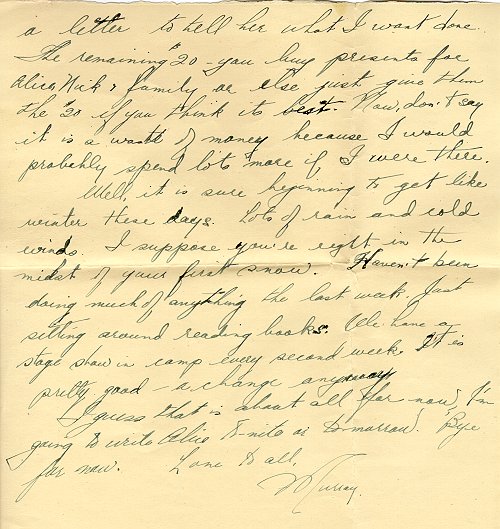 a letter to tell her what I want done.
The remaining $20 - you buy presents for
Alice, Nick & family or else just give them
the $20 if you think its best. Now, don't say
it is a waste of money because I would
probably spend lots more if I were there.
Well, it is sure beginning to get like
winter these days. Lots of rain and cold
winds. I suppose you're right in the
midst of your first snow. Haven't been
doing much of anything the last week. Just
sitting around reading books. We have a
stage show in camp every second week. It is
pretty good - a change anyway
I guess that is about all for now, I'm
going to write Alice to-nite or tomorrow. 'Bye
for now. Love to all,
Murray.